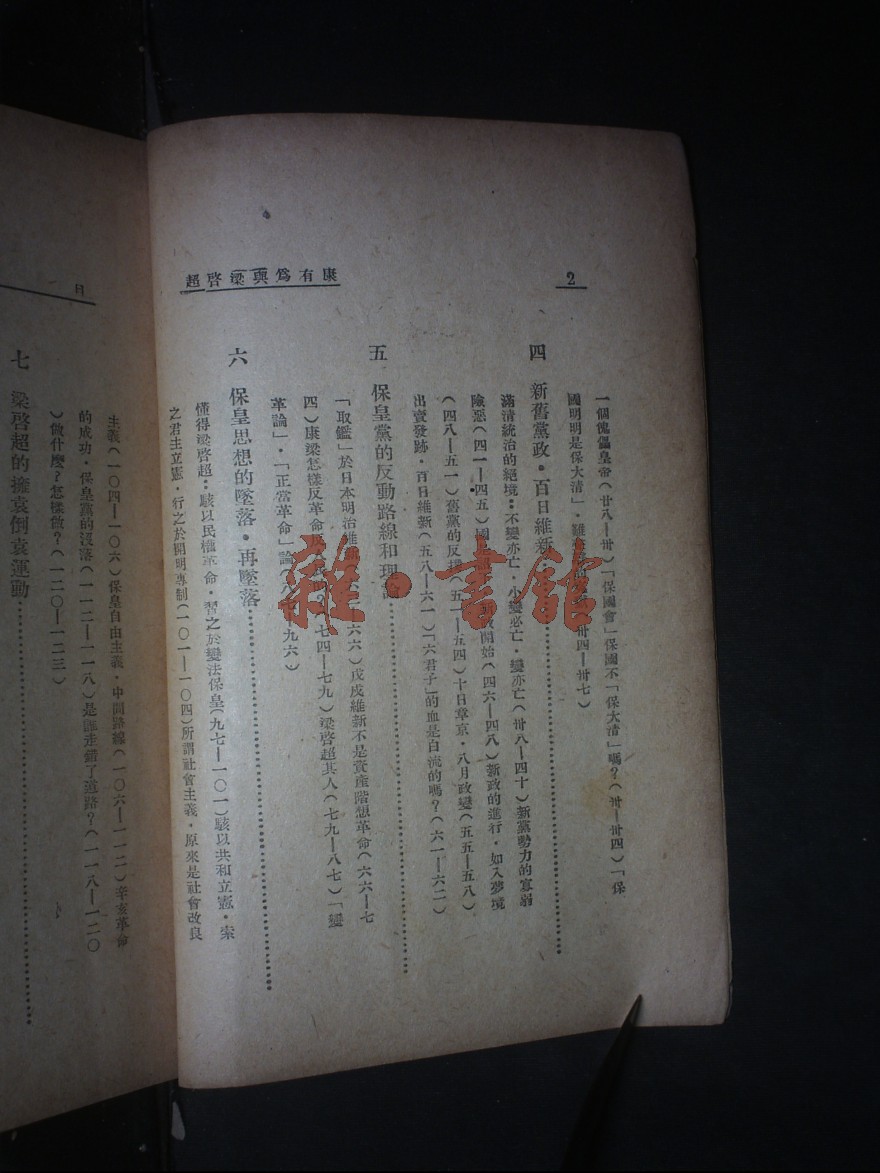 2
康有為與梁啓超
一個傀儡皇帝(廿八—卅)「保國會」保國不「保大清」嗎?(卅—卅四)「保
國明明是保大清」,難
卅四—卅七)
四 新舊黨政·百日維新
滿清統治的絕境:不變亦亡·小變必亡·變亦亡(卅八—四十)新黨勢力的寡弱
險惡(四一—四五)國
開始(四六—四八)新政的進行·如入夢境
(四八—五一)舊黨的反撲(五一—五四)十日章京·八月政變(五五—五八)
出賣發跡·百日維新(五八—六一)「六君子」的血是白流的嗎?(六一—六二)
五 保皇黨的反動路線和理
「取鑑」於日本明治維
六六)戊戌維新不是資產階想革命(六六—七
四)康梁怎樣反革命
七四—七九)梁啓超其人(七九—八七)「變
革論」·「正當革命」論(八七—九六)
六 保皇思想的墜落·再墜落
懂得梁啓超:駭以民權革命·習之於變法保皇(九七—一〇一)駭以共和立憲·索
之君主立憲·行之於開明專制(一〇一—一〇四)所謂社會主義·原來是社會改良
目
主義(一〇四—一〇六)保皇自由主義·中間路線(一〇六—一一二)辛亥革命
的成功·保皇黨的沒落(一一二—一一八)是誰走錯了道路?(一一八—一二〇
)做什麼?怎樣做?(一二〇—一二三)
七 梁啓超的擁袁倒袁運動
雜·書館